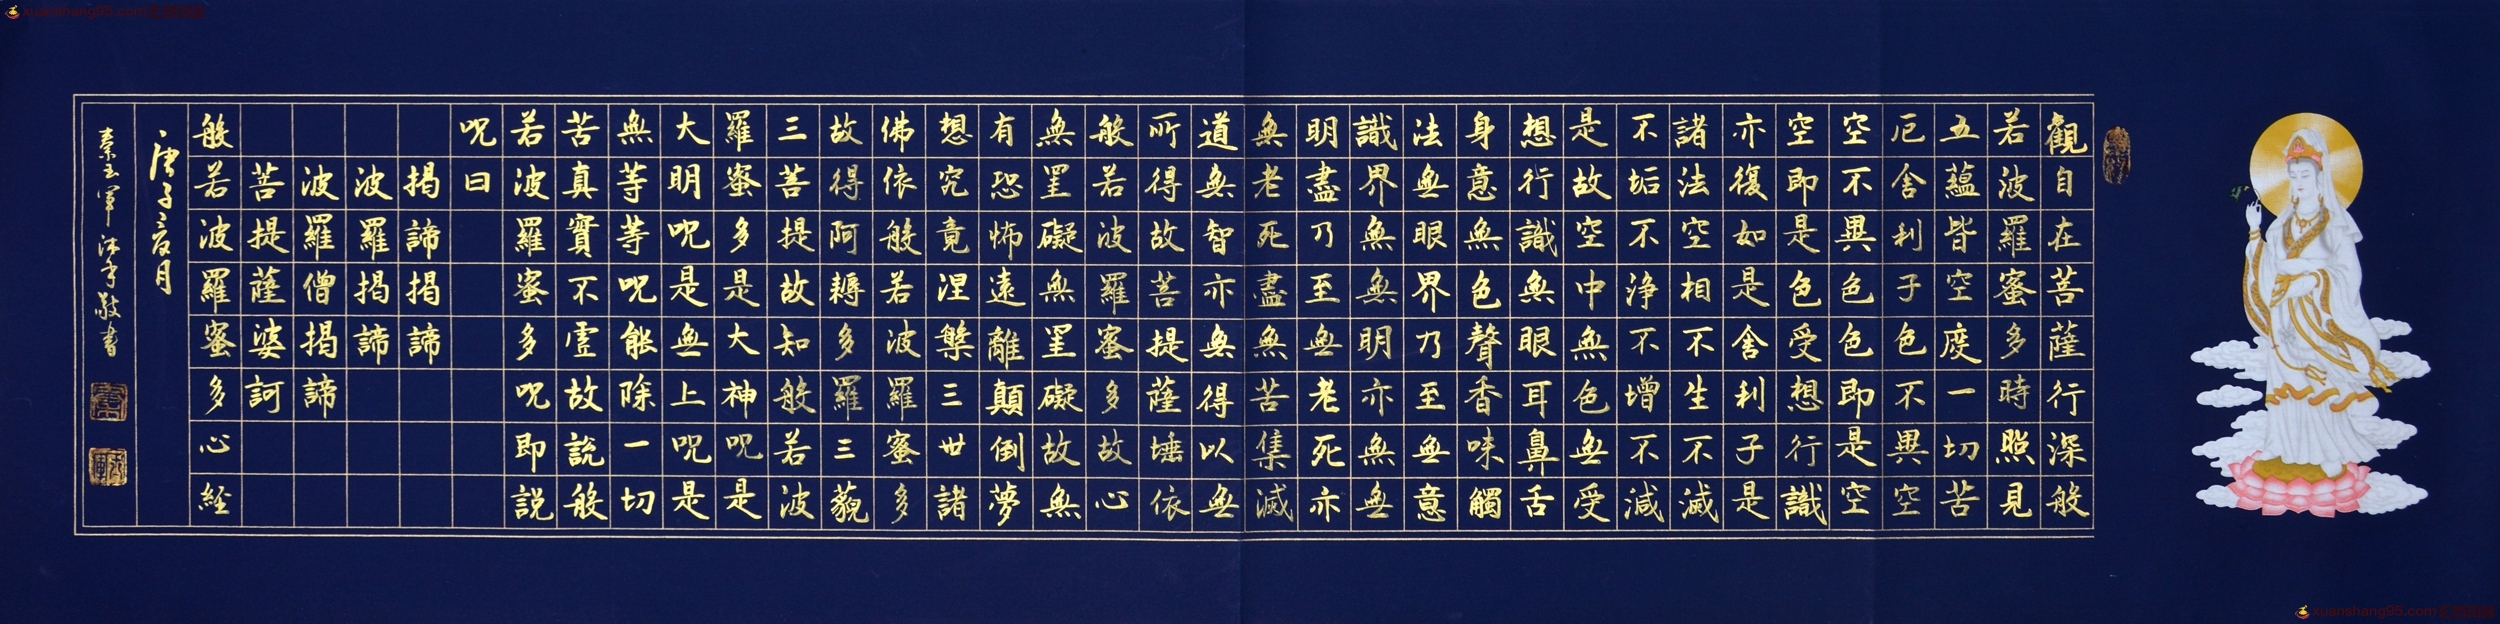 觀自在菩薩行深般
若波羅蜜多時照見
五蘊皆空度一切苦
厄舍利子色不異空
空不異色色即是空
空即是色受想行識
亦復如是舍利子是
諸法空相不生不滅
不垢不淨不增不減
是故空中無色無受
想行識無眼耳鼻舌
身意無色聲香味觸
法無眼界乃至無意
識界無無明亦無無
明盡乃至無老死亦
無老死盡無苦集滅
道無智亦無得以無
所得故菩提薩埵依
般若波羅蜜多故心
無罣礙無罣礙故無
有恐怖遠離顛倒夢
想究竟涅槃三世諸
佛依般若波羅蜜多
故得阿耨多羅三藐
三菩提故知般若波
羅蜜多是大神咒是
大明咒是無上咒是
無等等咒能除一切
苦真實不虛故說般
若波羅蜜多咒即說
咒曰
揭諦揭諦
波羅揭諦
波羅僧揭諦
菩提薩婆訶
般若波羅蜜多心經
庚子月
秦玉軍沐手敬書
xuanshang95.com
xuanshang95.com